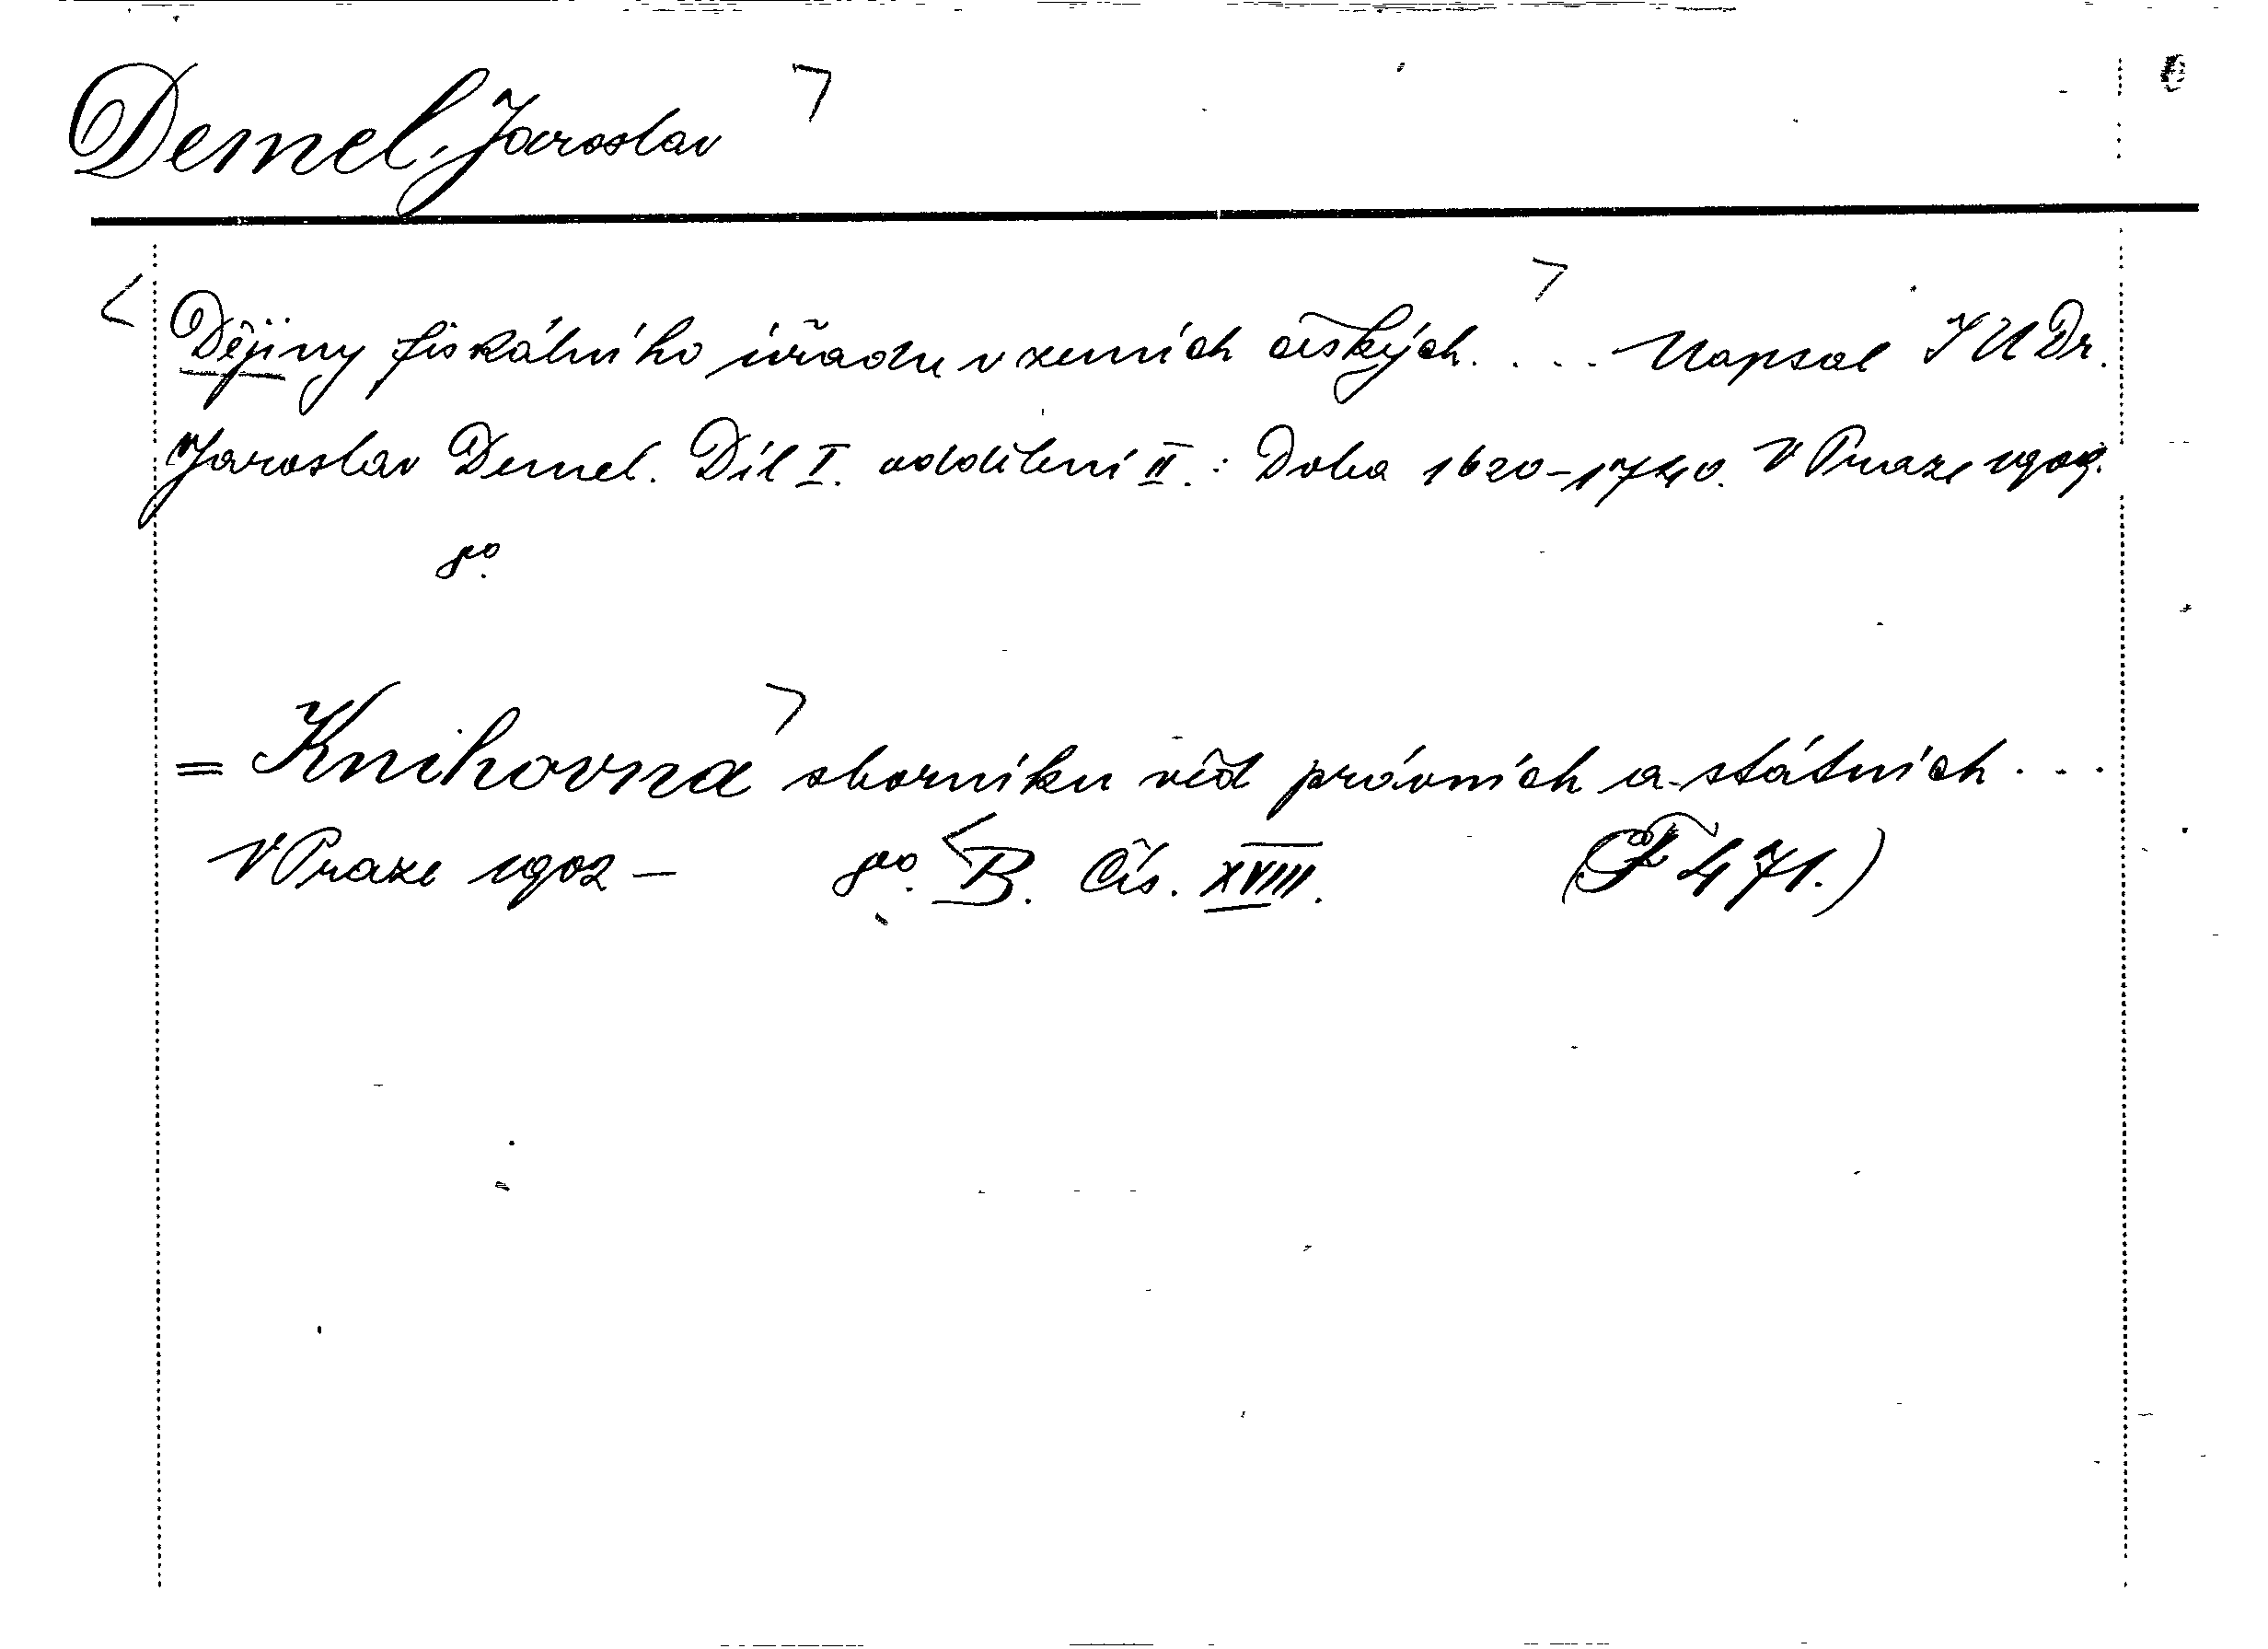 Demel, Jaroslav
Dějiny fiskálního úřadu v zemích českých. . . . Napsal JUDr.
Jaroslav Demel. Díl I. oddělení II.: Doba 1620-1740. V Praze 1909.
8º.
= Knihovna sborníku věd právních a státních . . .
V Praze 1902 — 8º. B. Čís. XVIII. (F 471.)